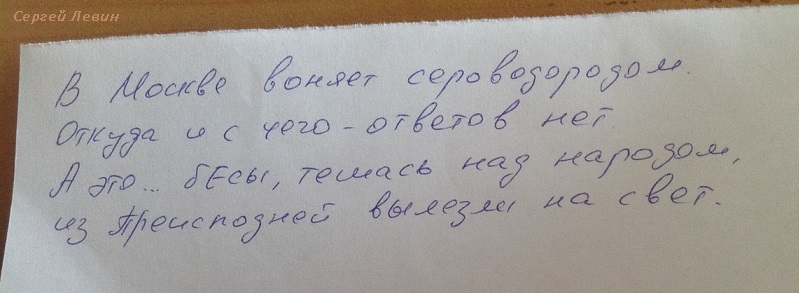 Сергей Левин
В Москве воняет сероводородом.
Откуда и с чего - ответов нет.
А это... бЕсы, тешась над народом,
из Преисподней вылезли на свет.